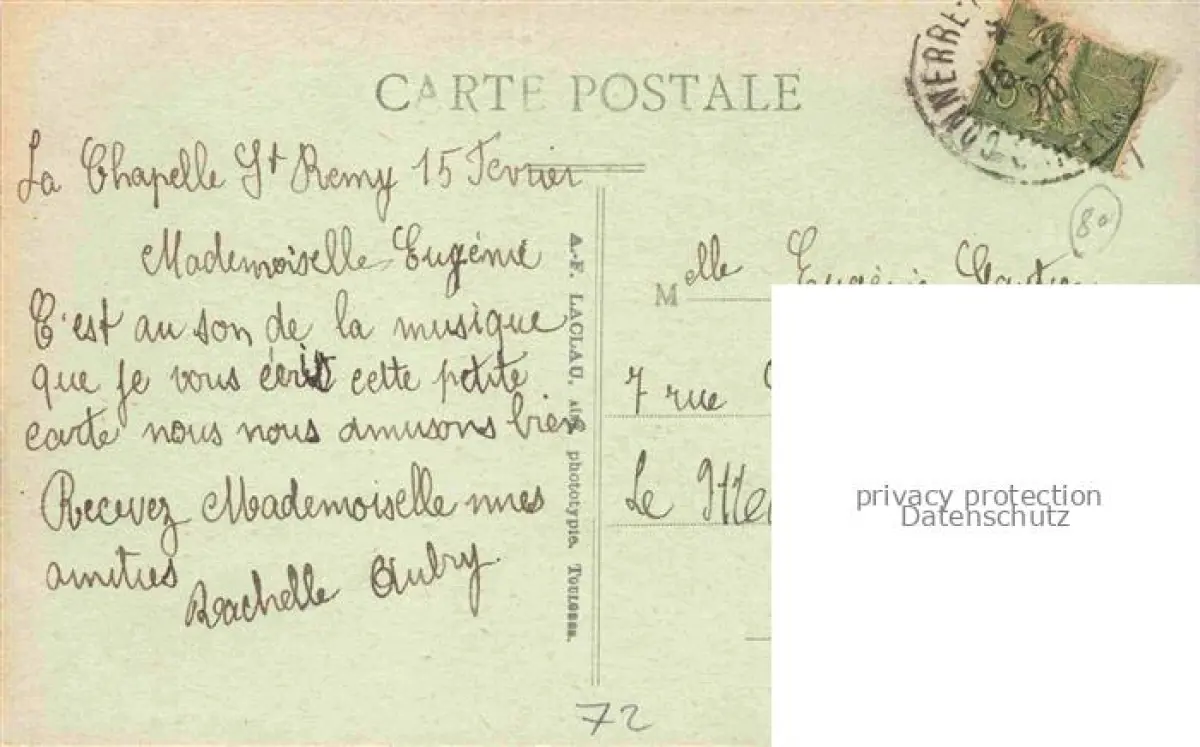 CARTE POSTALE
CONNERRE
18 2
20
80
La Chapelle St Remy 15 Fevrier
Mademoiselle Eugénie
C'est au son de la musique
que je vous écrit cette petite
carte nous nous amusons bien
Recevez Mademoiselle mes
amities
Rachelle Aubry.
A.-F. LACLAU, phototypie, Toulouse.
Melle Eugénie
7 rue
Le
72
privacy protection
Datenschutz